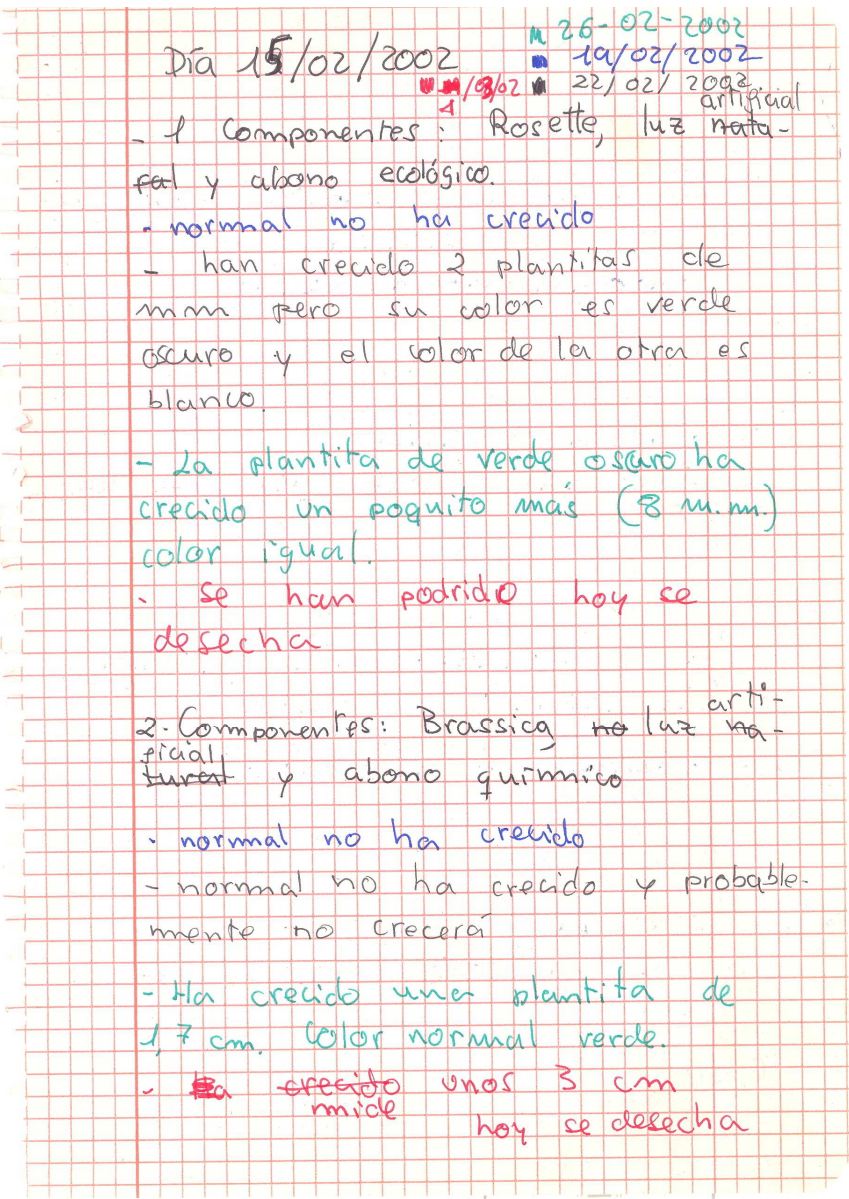 M 26-02-2002
Día 15/02/2002
19/02/2002
1/03/02
22/02/2002
artificial
- 1 Componentes: Rosette, luz nata-
ral y abono ecológico.
- normal no ha crecido
- han crecido 2 plantitas de
mm pero su color es verde
oscuro y el color de la otra es
blanco.
- La plantita de verde oscuro ha
crecido un poquito más (8 m.m.)
color igual.
- se han podrido hoy se
desecha
arti-
2. Componentes: Brassica no luz na-
ficial
tural y abono químico
- normal no ha crecido
- normal no ha crecido y probable-
mente no crecerá
- Ha crecido una plantita de
1,7 cm. Color normal verde.
- Ha crecido unos 3 cm
mide
hoy se desecha